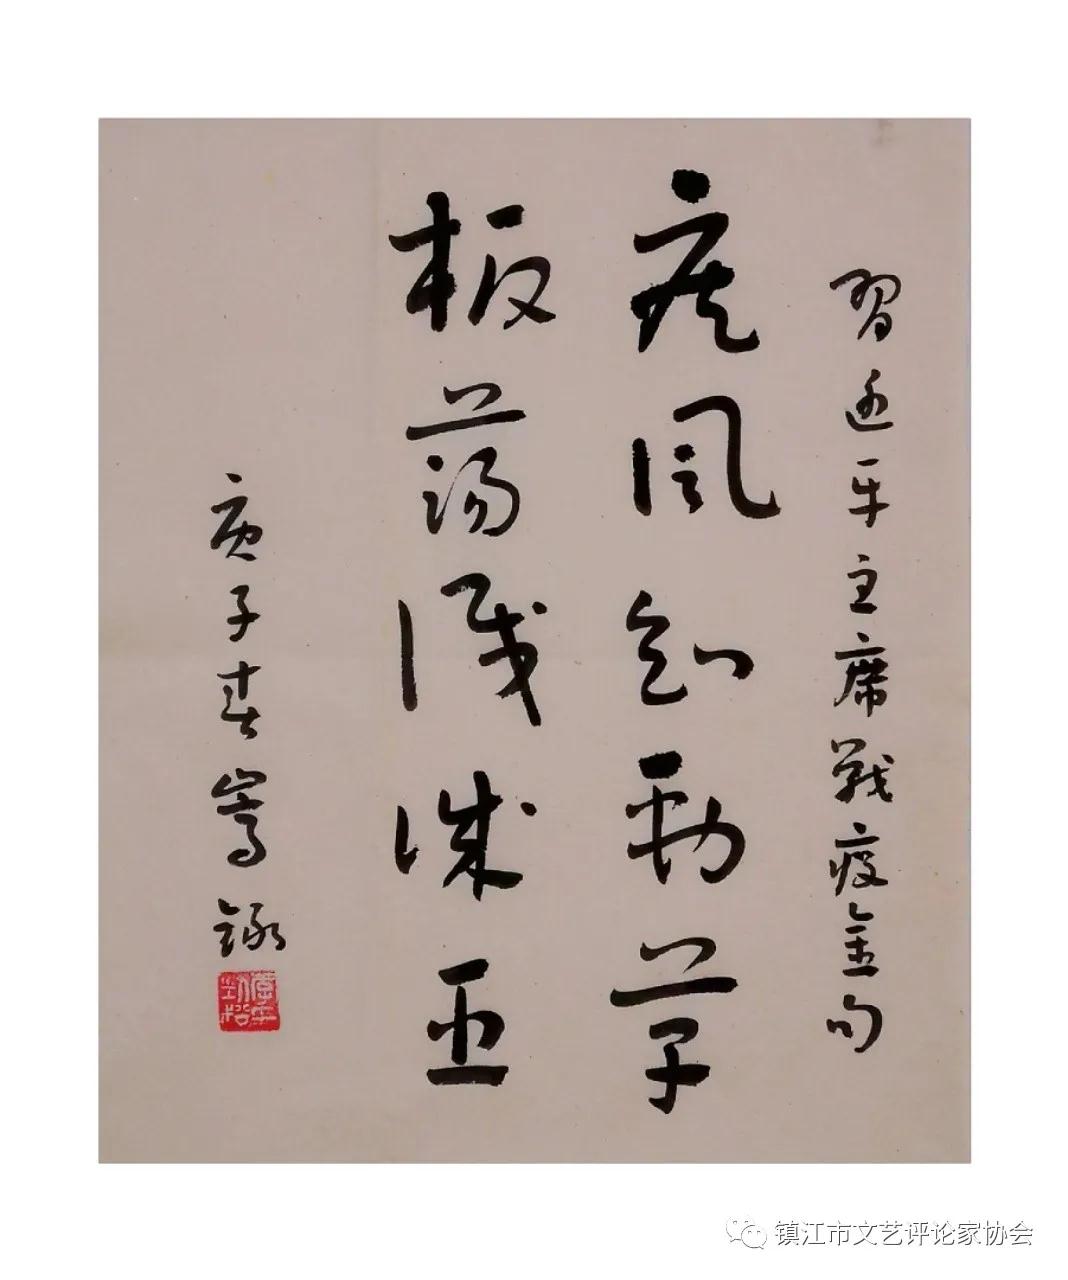 習近平主席戰疫金句
疾風知勁草
板蕩識誠臣
庚子春嵩錄
镇江市文艺评论家协会